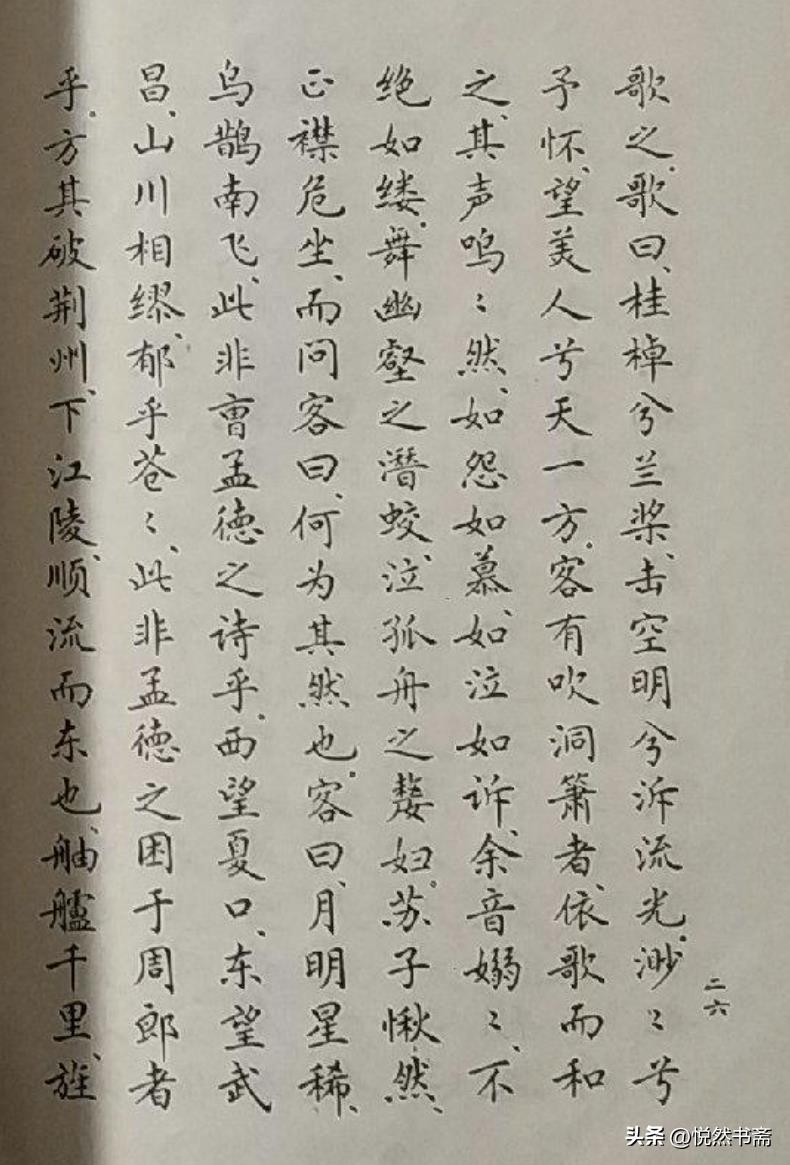 歌之。歌曰、桂棹兮兰桨、击空明兮泝流光。渺〻兮
予怀、望美人兮天一方。客有吹洞箫者、依歌而和
之、其声呜〻然、如怨如慕、如泣如诉、余音嫋〻、不
绝如缕。舞幽壑之潜蛟、泣孤舟之嫠妇。苏子愀然、
正襟危坐、而问客曰、何为其然也。客曰、月明星稀、
乌鹊南飞、此非曹孟德之诗乎。西望夏口、东望武
昌、山川相缪、郁乎苍〻、此非孟德之困于周郎者
乎。方其破荆州、下江陵、顺流而东也、舳舻千里、旌
二六
头条 @悦然书斋